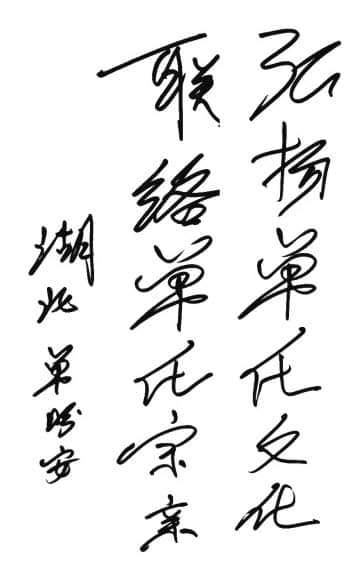 弘扬单氏文化
联络单氏宗亲
湖北 单盼安